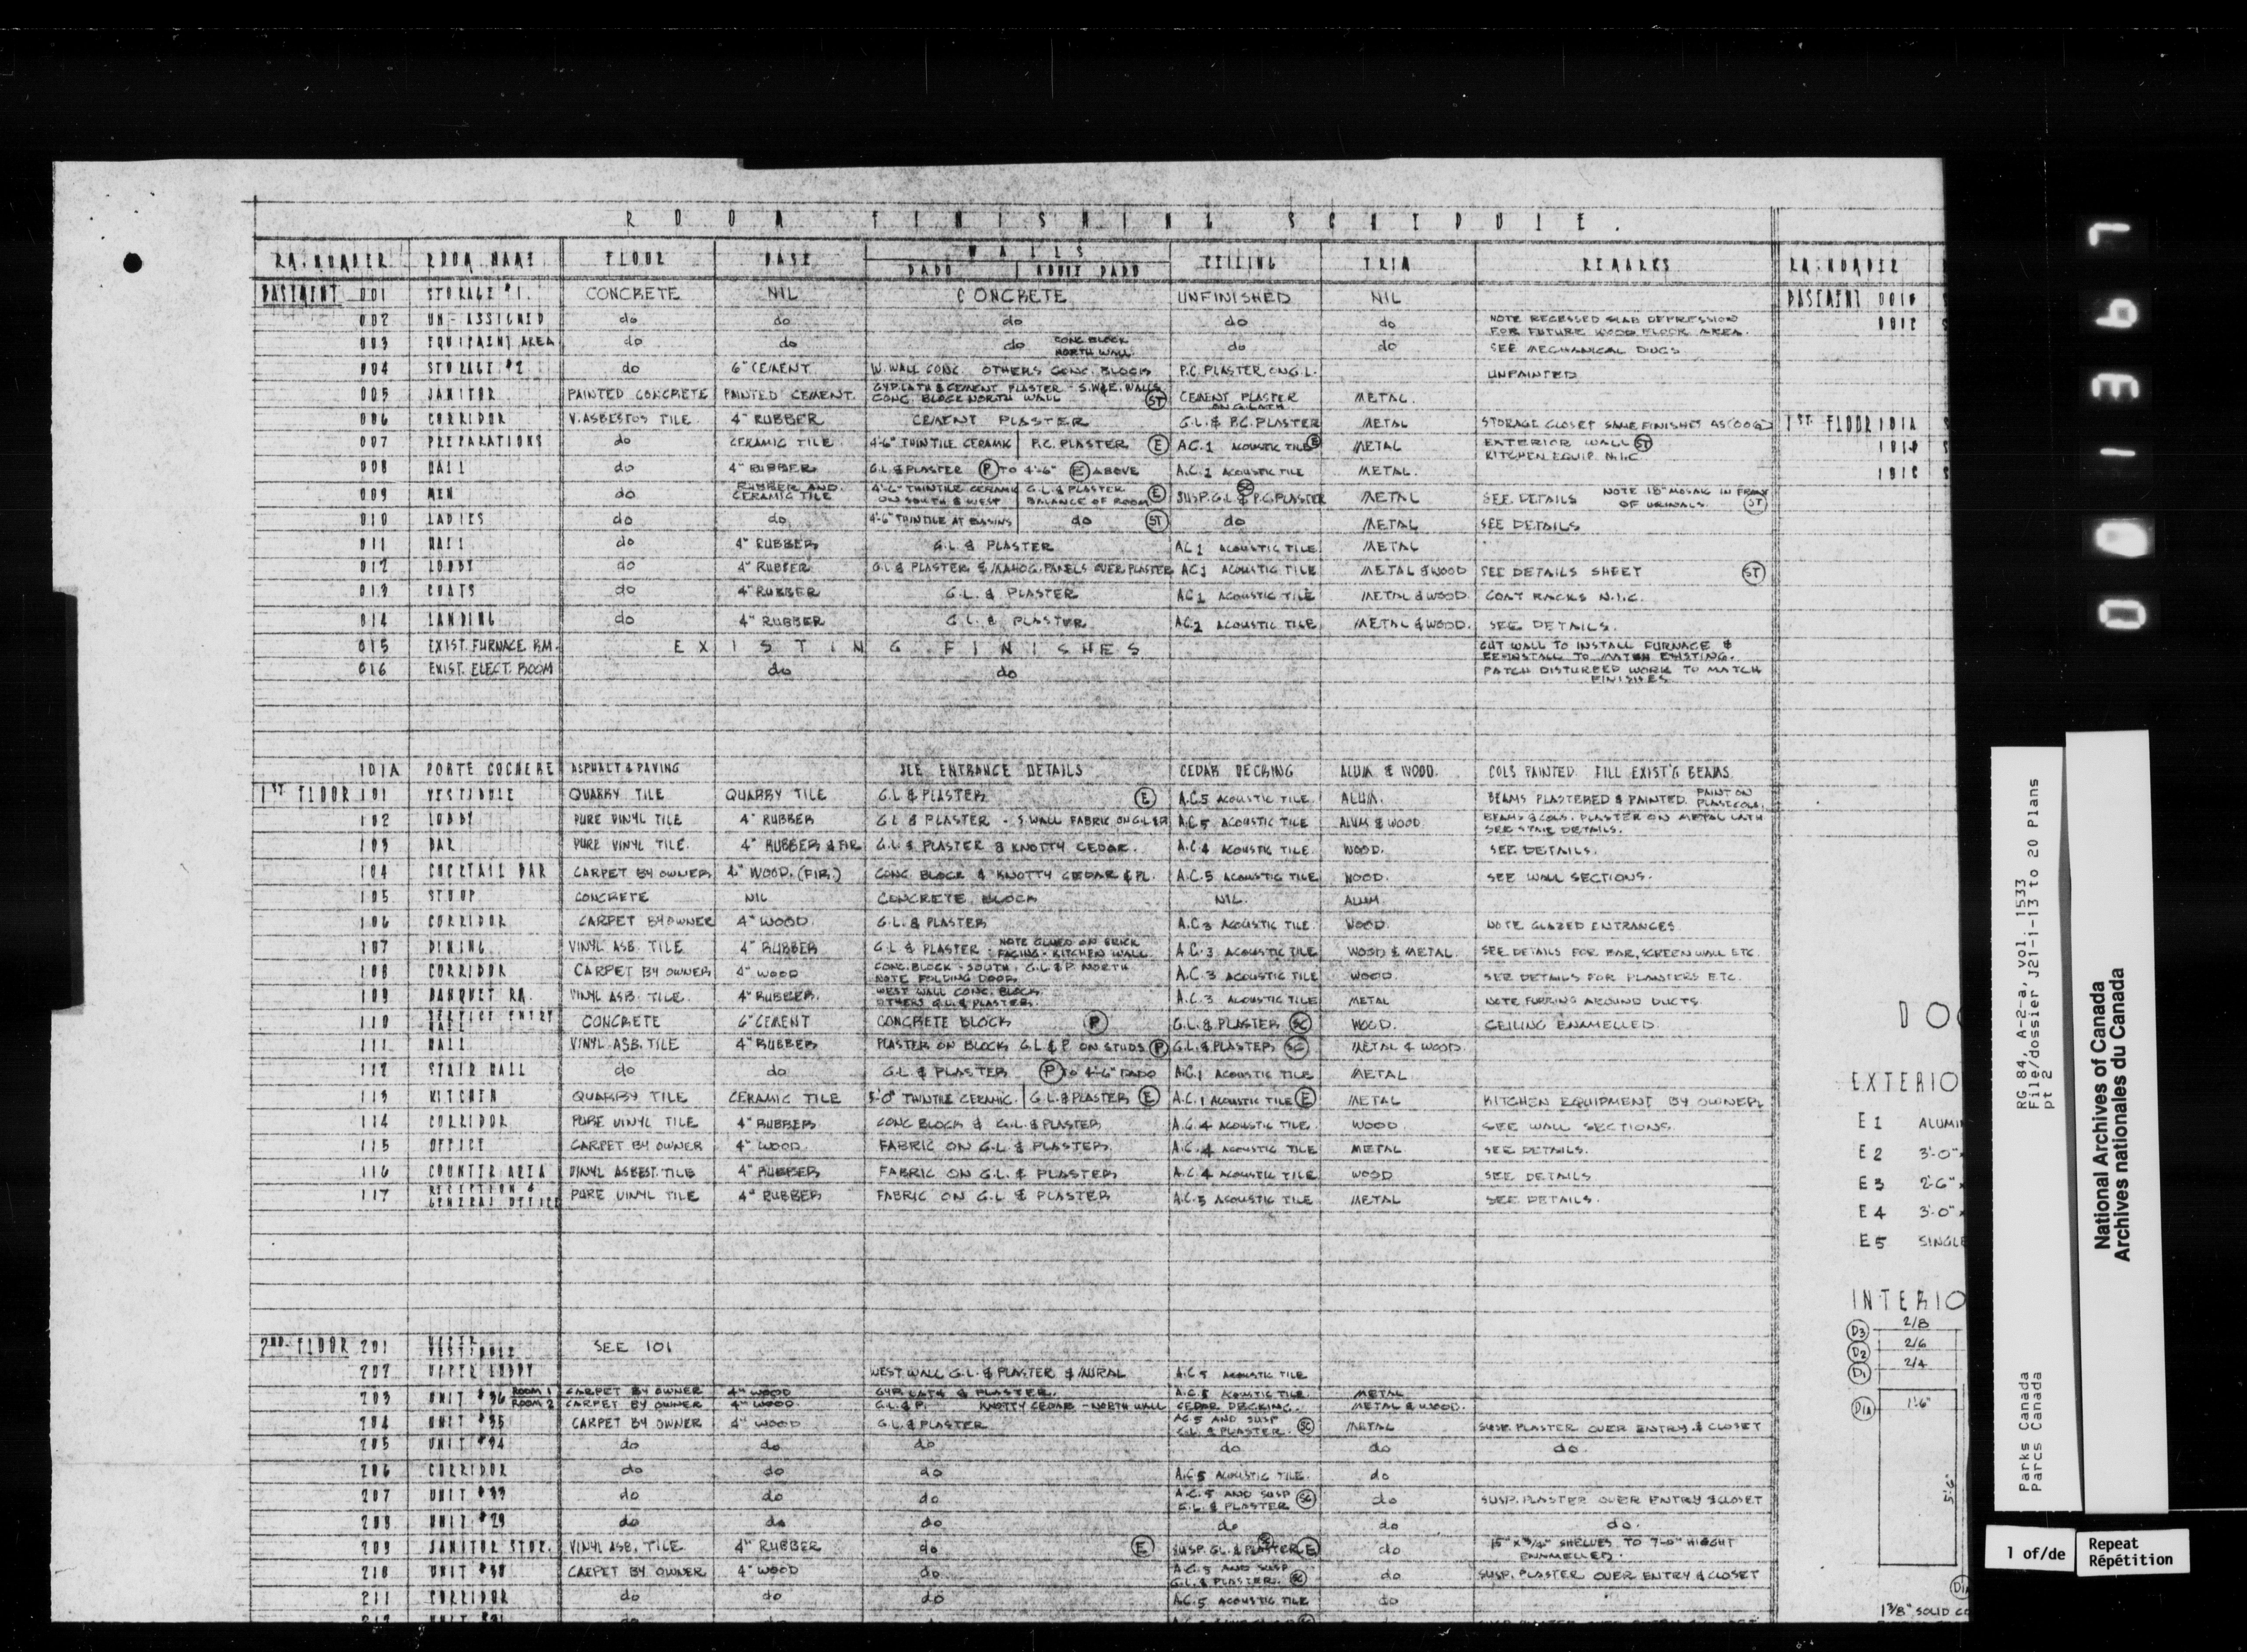 ROOM FINISHING SCHEDULE.
RM. NUMBER ROOM NAME FLOOR BASE WALLS DADO ABOVE DADO CEILING TRIM REMARKS RM. NUMBER
BASEMENT 001 STORAGE #1. CONCRETE NIL CONCRETE UNFINISHED NIL BASEMENT
002 UN-ASSIGNED do do do do do NOTE RECESSED SLAB DEPRESSION FOR FUTURE WOOD FLOOR AREA.
003 EQUIPMENT AREA do do do CONC BLOCK NORTH WALL do do SEE MECHANICAL DWGS
004 STORAGE #2 do 6" CEMENT W. WALL CONC. OTHERS CONC. BLOCK P.C. PLASTER ON G.L. UNPAINTED
005 JANITOR PAINTED CONCRETE PAINTED CEMENT. GYP. LATH & CEMENT PLASTER - S.W&E. WALLS CONC. BLOCK NORTH WALL ST CEMENT PLASTER ON G. LATH METAL.
006 CORRIDOR V. ASBESTOS TILE 4" RUBBER CEMENT PLASTER G.L. & P.C. PLASTER METAL STORAGE CLOSET SAME FINISHES AS (006) 1ST FLOOR 101A
007 PREPARATIONS do CERAMIC TILE 4'-6" THINTILE CERAMIC P.C. PLASTER E A.C.1 ACOUSTIC TILE E METAL EXTERIOR WALL ST KITCHEN EQUIP. N.I.C.
008 HALL do 4" RUBBER G.L. & PLASTER P TO 4'-6" E ABOVE A.C.1 ACOUSTIC TILE METAL.
009 MEN do RUBBER AND CERAMIC TILE 4'-6" THINTILE CERAMIC ON SOUTH & WEST G.L. & PLASTER BALANCE OF ROOM E SUSP. G.L. & P.C. PLASTER SC METAL SEE DETAILS NOTE 18" MOSAIC IN FRONT OF URINALS. ST
010 LADIES do do 4'-6" THINTILE AT BASINS do ST do METAL SEE DETAILS
011 HALL do 4" RUBBER G.L. & PLASTER AC1 ACOUSTIC TILE METAL
012 LOBBY do 4" RUBBER G.L & PLASTER & MAHOG. PANELS OVER PLASTER AC1 ACOUSTIC TILE METAL & WOOD SEE DETAILS SHEET ST
013 COATS do 4" RUBBER G.L. & PLASTER AC1 ACOUSTIC TILE METAL & WOOD COAT RACKS N.I.C.
014 LANDING do 4" RUBBER G.L. & PLASTER AC.2 ACOUSTIC TILE METAL & WOOD. SEE DETAILS.
015 EXIST. FURNACE RM. EXISTING FINISHES CUT WALL TO INSTALL FURNACE & RE-INSTALL TO MATCH EXISTING.
016 EXIST. ELECT. ROOM do do PATCH DISTURBED WORK TO MATCH FINISHES
101A PORTE COCHERE ASPHALT & PAVING SEE ENTRANCE DETAILS CEDAR DECKING ALUM & WOOD. COLS PAINTED FILL EXIST'G BEAMS
1ST FLOOR 101 VESTIBULE QUARRY TILE QUARRY TILE G.L & PLASTER E A.C.5 ACOUSTIC TILE ALUM. BEAMS PLASTERED & PAINTED. PAINT ON
102 LOBBY PURE VINYL TILE 4" RUBBER G.L & PLASTER - S. WALL FABRIC ON A.C.5 ACOUSTIC TILE ALUM & WOOD. BEAMS & COLS. PLASTER ON METAL LATH SEE STAIR DETAILS.
103 BAR PURE VINYL TILE. 4" RUBBER & FIR G.L. & PLASTER & KNOTTY CEDAR. A.C.4 ACOUSTIC TILE. WOOD. SEE DETAILS.
104 COCKTAIL BAR CARPET BY OWNER 4" WOOD. (FIR.) CONC. BLOCK & KNOTTY CEDAR & PL. A.C.5 ACOUSTIC TILE WOOD. SEE WALL SECTIONS.
105 STOOP CONCRETE NIL CONCRETE BLOCK NIL. ALUM
106 CORRIDOR CARPET BY OWNER 4" WOOD. G.L. & PLASTER A.C.3 ACOUSTIC TILE. WOOD. NOTE GLAZED ENTRANCES
107 DINING VINYL ASB. TILE 4" RUBBER G.L & PLASTER NOTE GLUED ON BRICK FACING - KITCHEN WALL A.C.3 ACOUSTIC TILE WOOD & METAL. SEE DETAILS FOR BAR, SCREEN WALL ETC.
108 CORRIDOR CARPET BY OWNER 4" WOOD CONC. BLOCK - SOUTH. G.L & P. NORTH NOTE FOLDING DOOR. A.C.3 ACOUSTIC TILE WOOD. SEE DETAILS FOR PLANTERS ETC.
109 BANQUET RM. VINYL ASB. TILE. 4" RUBBER. WEST WALL CONC. BLOCK OTHERS G.L. & PLASTER. A.C.3 ACOUSTIC TILE METAL NOTE FURRING AROUND DUCTS.
110 SERVICE ENTRY HALL CONCRETE 6" CEMENT CONCRETE BLOCK P G.L. & PLASTER SC WOOD. CEILING ENAMELLED.
111 HALL VINYL ASB. TILE 4" RUBBER PLASTER ON BLOCK G.L & P. ON STUDS P G.L. & PLASTER SC METAL & WOOD.
112 STAIR HALL do do G.L. & PLASTER P TO 4'-6" DADO A.C.1 ACOUSTIC TILE METAL
113 KITCHEN QUARRY TILE CERAMIC TILE 5'-0" THINTILE CERAMIC. G.L. & PLASTER E A.C.1 ACOUSTIC TILE E METAL KITCHEN EQUIPMENT BY OWNER
114 CORRIDOR PURE VINYL TILE 4" RUBBER CONC BLOCK & G.L. & PLASTER A.C.4 ACOUSTIC TILE. WOOD SEE WALL SECTIONS.
115 OFFICE CARPET BY OWNER 4" WOOD. FABRIC ON G.L & PLASTER A.C.4 ACOUSTIC TILE METAL SEE DETAILS.
116 COUNTER AREA VINYL ASBEST. TILE 4" RUBBER FABRIC ON G.L. & PLASTER A.C.4 ACOUSTIC TILE WOOD SEE DETAILS
117 RECEPTION & GENERAL OFFICE PURE VINYL TILE 4" RUBBER FABRIC ON G.L & PLASTER A.C.5 ACOUSTIC TILE METAL SEE DETAILS.
2ND. FLOOR 201 UPPER VESTIBULE SEE 101
202 UPPER LOBBY WEST WALL G.L. & PLASTER & MURAL A.C.5 ACOUSTIC TILE
203 UNIT #36 ROOM 1 CARPET BY OWNER 4" WOOD GYP LATH & PLASTER. A.C.5 ACOUSTIC TILE. METAL
ROOM 2 CARPET BY OWNER 4" WOOD. G.L. & P. KNOTTY CEDAR - NORTH WALL CEDAR DECKING. METAL & WOOD.
204 UNIT #35 CARPET BY OWNER 4" WOOD G.L. & PLASTER AC.5 AND SUSP G.L. & PLASTER. SC METAL SUSP. PLASTER OVER ENTRY & CLOSET
205 UNIT #34 do do do do do do.
206 CORRIDOR do do do A.C.5 ACOUSTIC TILE. do
207 UNIT #33 do do do A.C.5 AND SUSP G.L. & PLASTER SC do SUSP. PLASTER OVER ENTRY & CLOSET
208 UNIT #29 do do do do do do.
209 JANITOR STOR. VINYL ASB. TILE 4" RUBBER do E SUSP. G.L. & PLASTER E do 15" x 3/4" SHELVES TO 7'-0" HEIGHT ENAMELLED.
210 UNIT #30 CARPET BY OWNER 4" WOOD do. A.C.5 AND SUSP G.L. & PLASTER. SC do SUSP. PLASTER OVER ENTRY & CLOSET
211 CORRIDOR do do do A.C.5 ACOUSTIC TILE do
EXTERIO
E1 ALUMI
E2 3'-0"
E3 2'-6"
E4 3'-0"
E5 SINGLE
INTERIO
D3 2/8
D2 2/6
D1 2/4
D1A 1'6"
5'-6"
1 3/8" SOLID CO
RG 84, A-2-a, vol. 1533
File/dossier J21-i-13 to 20 Plans
pt 2
Parks Canada
Parcs Canada
National Archives of Canada
Archives nationales du Canada
1 of/de
Repeat
Répétition